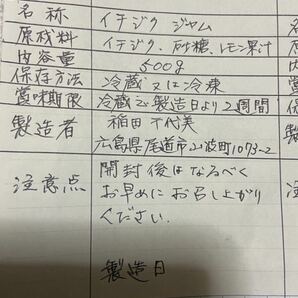 名称 イチジク ジャム
原材料 イチジク、砂糖、レモン果汁
内容量 500g
保存方法 冷蔵又は冷凍
賞味期限 冷蔵で製造日より2週間
製造者 稲田 千代美
広島県尾道市山波町1073-2
注意点 開封後はなるべく
お早めにお召し上がり
ください。
製造日